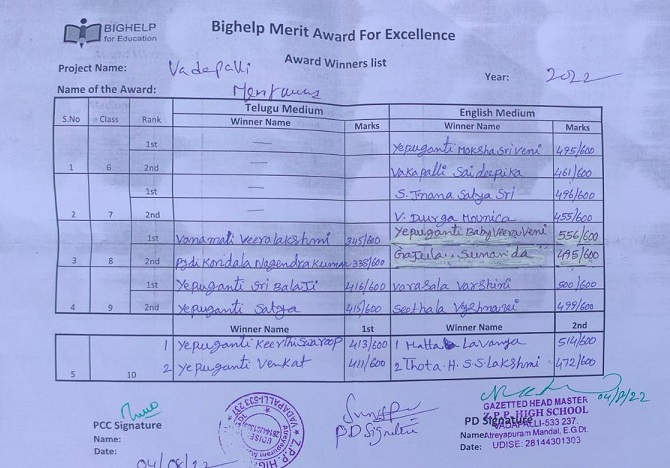 BIGHELP
for Education
Bighelp Merit Award For Excellence
Award Winners list
Project Name: Vadapalli
Year: 2022
Name of the Award:
S.No Class Rank Telugu Medium English Medium
Winner Name Marks Winner Name Marks
1st — Yepuganti Moksha Sri Veni 495/600
1 6 2nd — Vakapalli Sai deepika 461/600
1st — S. Jnana Satya Sri 496/600
2 7 2nd — V. Durga Mounica 455/600
1st Vanamali Veeralakshmi 345/600 Yepuganti Baby Veera Veni 556/600
3 8 2nd Pydi Kondala Nagendra Kumar 338/600 Gajjela Sunanda 495/600
1st Yepuganti Sri Balaji 416/600 Varasala Varshini 500/600
4 9 2nd Yepuganti Satya 415/600 Seethala 499/600
Winner Name 1st Winner Name 2nd
1 Yepuganti Keerthi Swaroop 413/600 1 Lavanya 514/600
5 10 2 Yepuganti Venkat 411/600 2 Thota. H. S. S. Lakshmi 472/600
04/8/22
GAZETTED HEAD MASTER
Z.P.P. HIGH SCHOOL
VADAPALLI-533 237,
Atreyapuram Mandal, E.G.Dt.
UDISE: 28144301303
PCC Signature
PD Signature
PD Signature
Name:
Name:
Date:
Date:
04/08/22
VADAPALLI-533 237